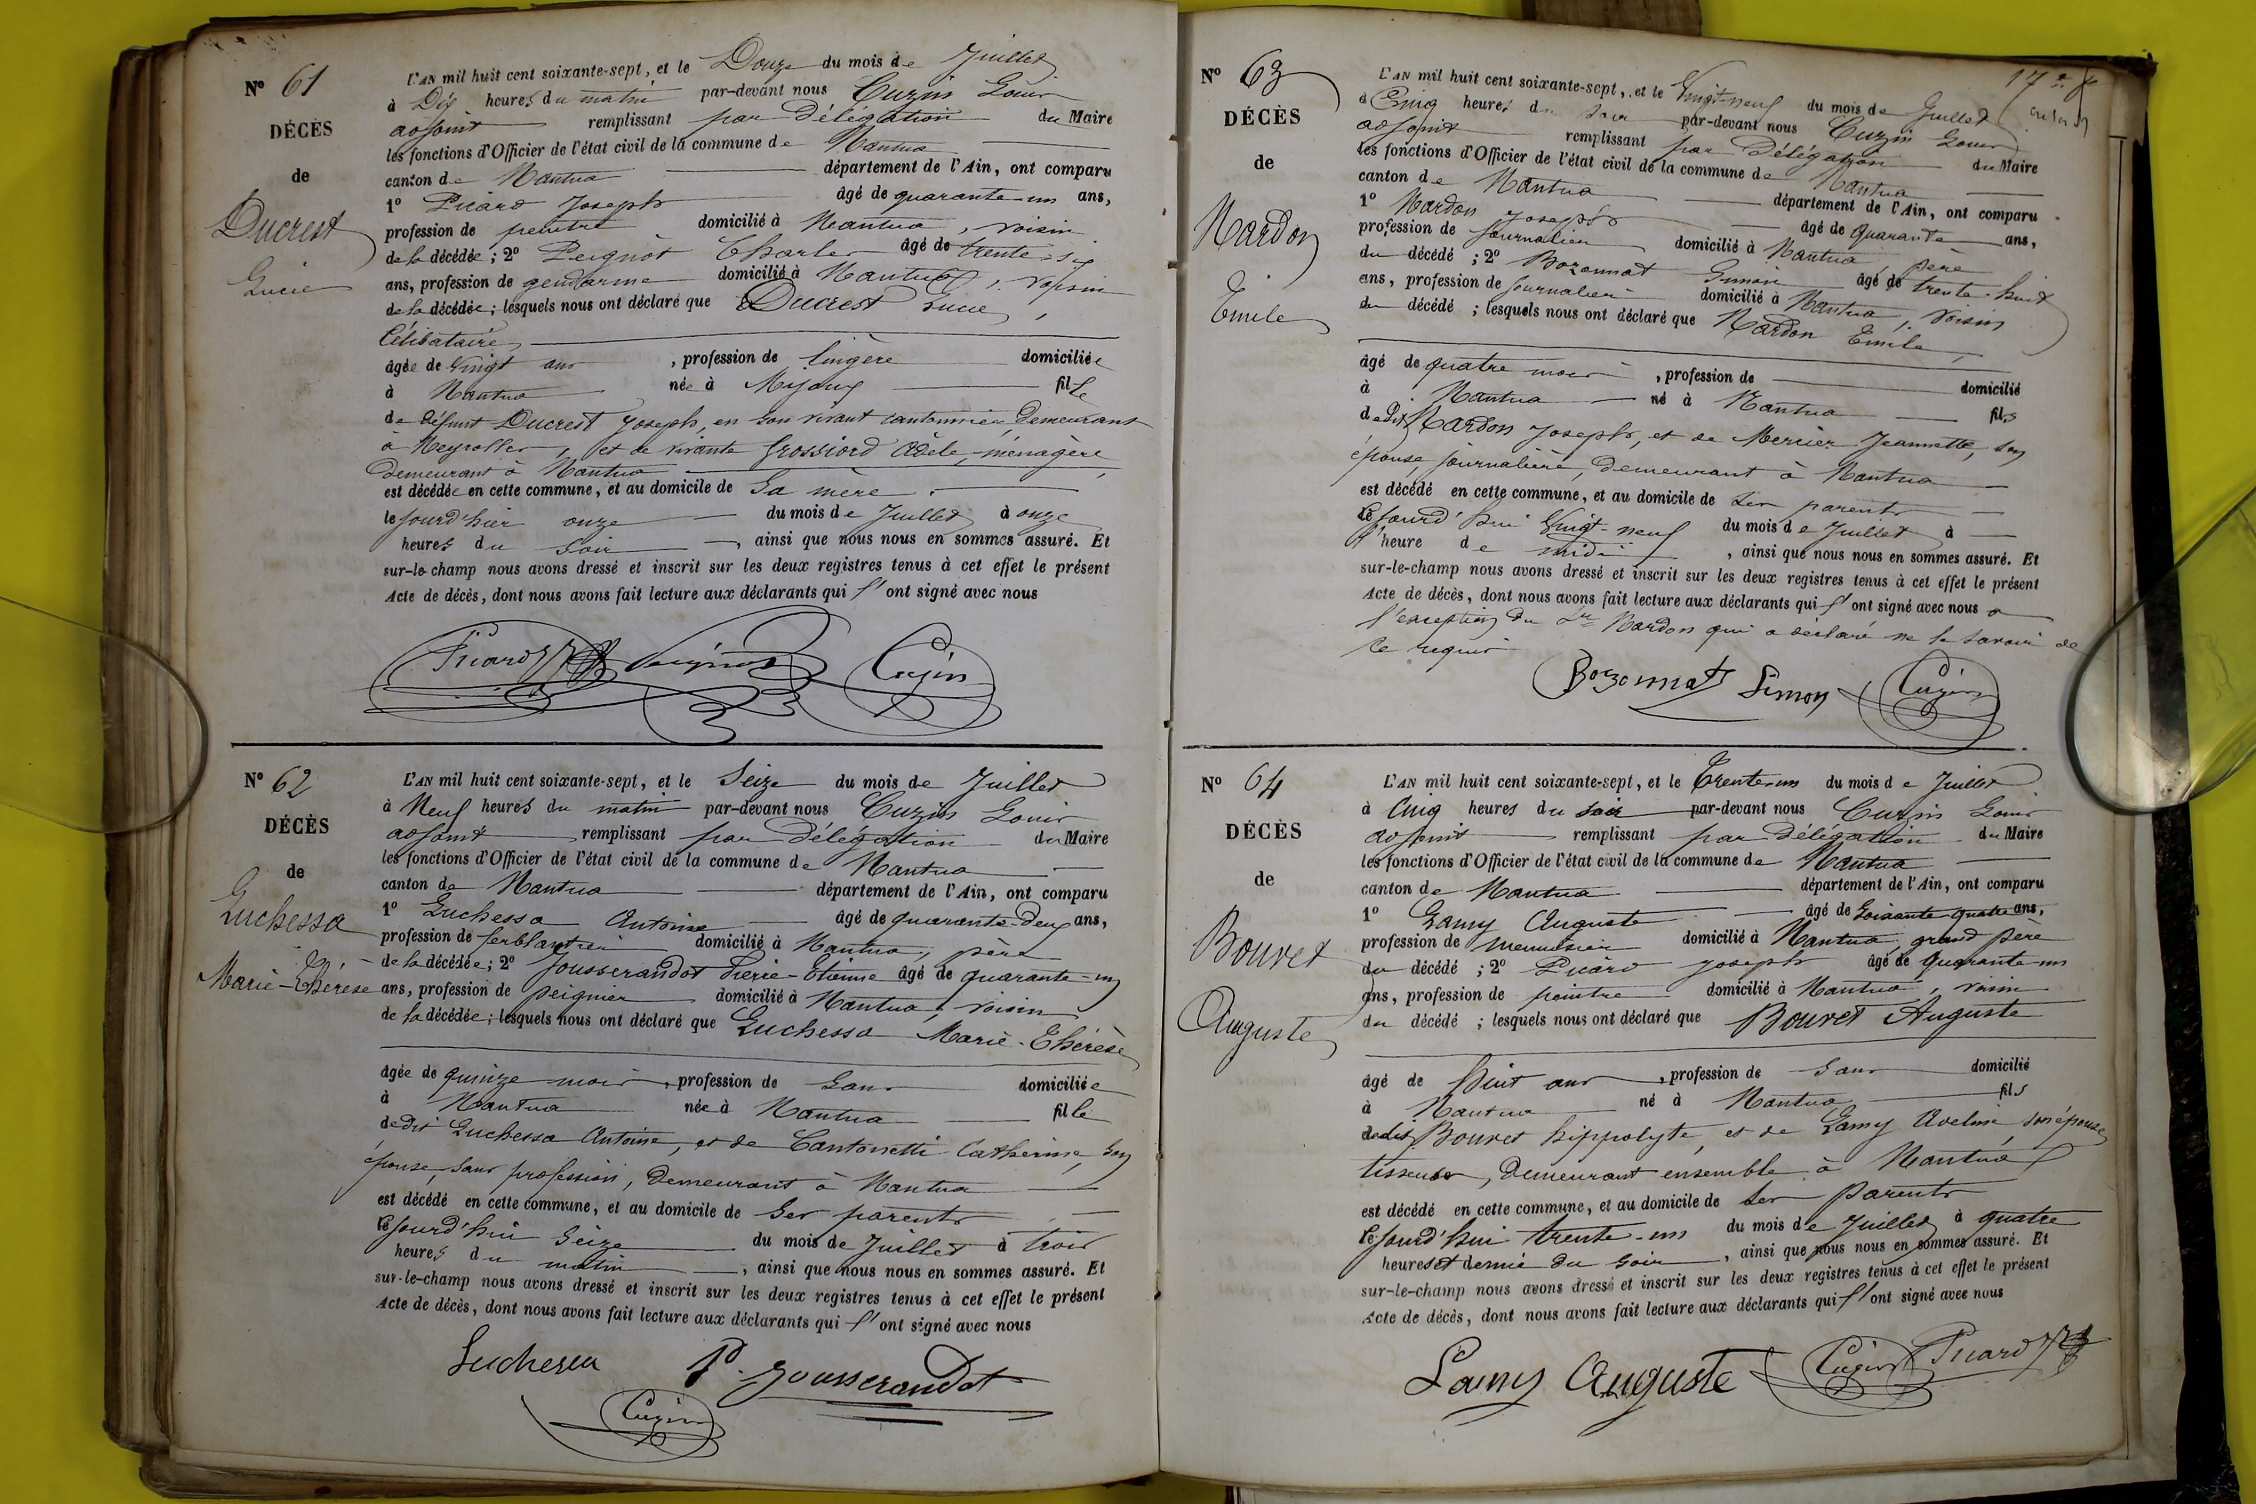 N° 61
DÉCÈS
de
Ducrest
Lucie
L'AN mil huit cent soixante-sept, et le Douze du mois de Juillet
à Dix heures du matin par-devant nous Cuzin Louis
adjoint remplissant par Délégation du Maire
les fonctions d'Officier de l'état civil de la commune de Nantua
canton de Nantua département de l'Ain, ont comparu
1° Picard Joseph âgé de quarante-un ans,
profession de peintre domicilié à Nantua, voisin
de la décédée; 2° Peignot Charles âgé de trente-six
ans, profession de gendarme domicilié à Nantua, voisin
de la décédée; lesquels nous ont déclaré que Ducrest Lucie,
Célibataire,
âgée de Vingt ans, profession de lingère domiciliée
à Nantua née à Mijoux fille
de défunt Ducrest Joseph, en son vivant cantonnier, Demeurant
à Neyrolles, et de vivante Grossiord Adèle, ménagère,
Demeurant à Nantua
est décédée en cette commune, et au domicile de Sa mère.
le Jourd'hier onze du mois de Juillet à onze
heures du Soir, ainsi que nous nous en sommes assuré. Et
sur-le-champ nous avons dressé et inscrit sur les deux registres tenus à cet effet le présent
Acte de décès, dont nous avons fait lecture aux déclarants qui l'ont signé avec nous
Picard Peignot Cuzin
N° 62
DÉCÈS
de
Luchessa
Marie-Thérèse
L'AN mil huit cent soixante-sept, et le Seize du mois de Juillet
à Neuf heures du matin par-devant nous Cuzin Louis
adjoint remplissant par Délégation du Maire
les fonctions d'Officier de l'état civil de la commune de Nantua
canton de Nantua département de l'Ain, ont comparu
1° Luchessa Antoine âgé de quarante-deux ans,
profession de ferblantier domicilié à Nantua, père
de la décédée; 2° Jousserandot Pierre-Etienne âgé de quarante-un
ans, profession de peignier domicilié à Nantua, voisin
de la décédée; lesquels nous ont déclaré que Luchessa Marie-Thérèse
âgée de quinze mois, profession de Sans domiciliée
à Nantua née à Nantua fille
de dit Luchessa Antoine, et de Cantonetti Catherine, Son
épouse, Sans profession, Demeurant à Nantua
est décédé en cette commune, et au domicile de Ses parents
le Jourd'hui Seize du mois de Juillet à trois
heures du matin, ainsi que nous nous en sommes assuré. Et
sur-le-champ nous avons dressé et inscrit sur les deux registres tenus à cet effet le présent
Acte de décès, dont nous avons fait lecture aux déclarants qui l'ont signé avec nous
Luchessa P. Jousserandot
Cuzin
17e f
N° 63
DÉCÈS
de
Nardon
Emile
L'AN mil huit cent soixante-sept, et le Vingt-neuf du mois de Juillet
à Cinq heures du Soir par-devant nous Cuzin Louis
adjoint remplissant par Délégation du Maire
les fonctions d'Officier de l'état civil de la commune de Nantua
canton de Nantua département de l'Ain, ont comparu
1° Nardon Joseph âgé de Quarante ans,
profession de Journalier domicilié à Nantua, père
du décédé; 2° Bozonnat Simon âgé de trente-huit
ans, profession de Journalier domicilié à Nantua, voisin
du décédé; lesquels nous ont déclaré que Nardon Emile,
âgé de quatre mois, profession de domicilié
à Nantua né à Nantua fils
de dit Nardon Joseph, et de Mercier Jeannette, son
épouse, journalière, Demeurant à Nantua
est décédé en cette commune, et au domicile de Ses parents
le Jourd'hui Vingt-neuf du mois de Juillet à
l'heure de midi, ainsi que nous nous en sommes assuré. Et
sur-le-champ nous avons dressé et inscrit sur les deux registres tenus à cet effet le présent
Acte de décès, dont nous avons fait lecture aux déclarants qui l'ont signé avec nous à
l'exception du Sr Nardon qui a déclaré ne le savoir de
ce requis
Bozonnat Simon Cuzin
N° 64
DÉCÈS
de
Bouvet
Auguste
L'AN mil huit cent soixante-sept, et le Trente-un du mois de Juillet
à Cinq heures du soir par-devant nous Cuzin Louis
adjoint remplissant par Délégation du Maire
les fonctions d'Officier de l'état civil de la commune de Nantua
canton de Nantua département de l'Ain, ont comparu
1° Lamy Auguste âgé de Soixante-quatre ans,
profession de menuisier domicilié à Nantua, grand père
du décédé; 2° Picard Joseph âgé de Quarante-un
ans, profession de peintre domicilié à Nantua, voisin
du décédé; lesquels nous ont déclaré que Bouvet Auguste
âgé de huit ans, profession de Sans domicilié
à Nantua né à Nantua fils
de dit Bouvet hippolyte, et de Lamy Adeline, son épouse
tisseurs, Demeurant ensemble à Nantua
est décédé en cette commune, et au domicile de Ses parents
le Jourd'hui trente-un du mois de Juillet à quatre
heures et demie du soir, ainsi que nous nous en sommes assuré. Et
sur-le-champ nous avons dressé et inscrit sur les deux registres tenus à cet effet le présent
Acte de décès, dont nous avons fait lecture aux déclarants qui l'ont signé avec nous
Lamy Auguste Cuzin Picard